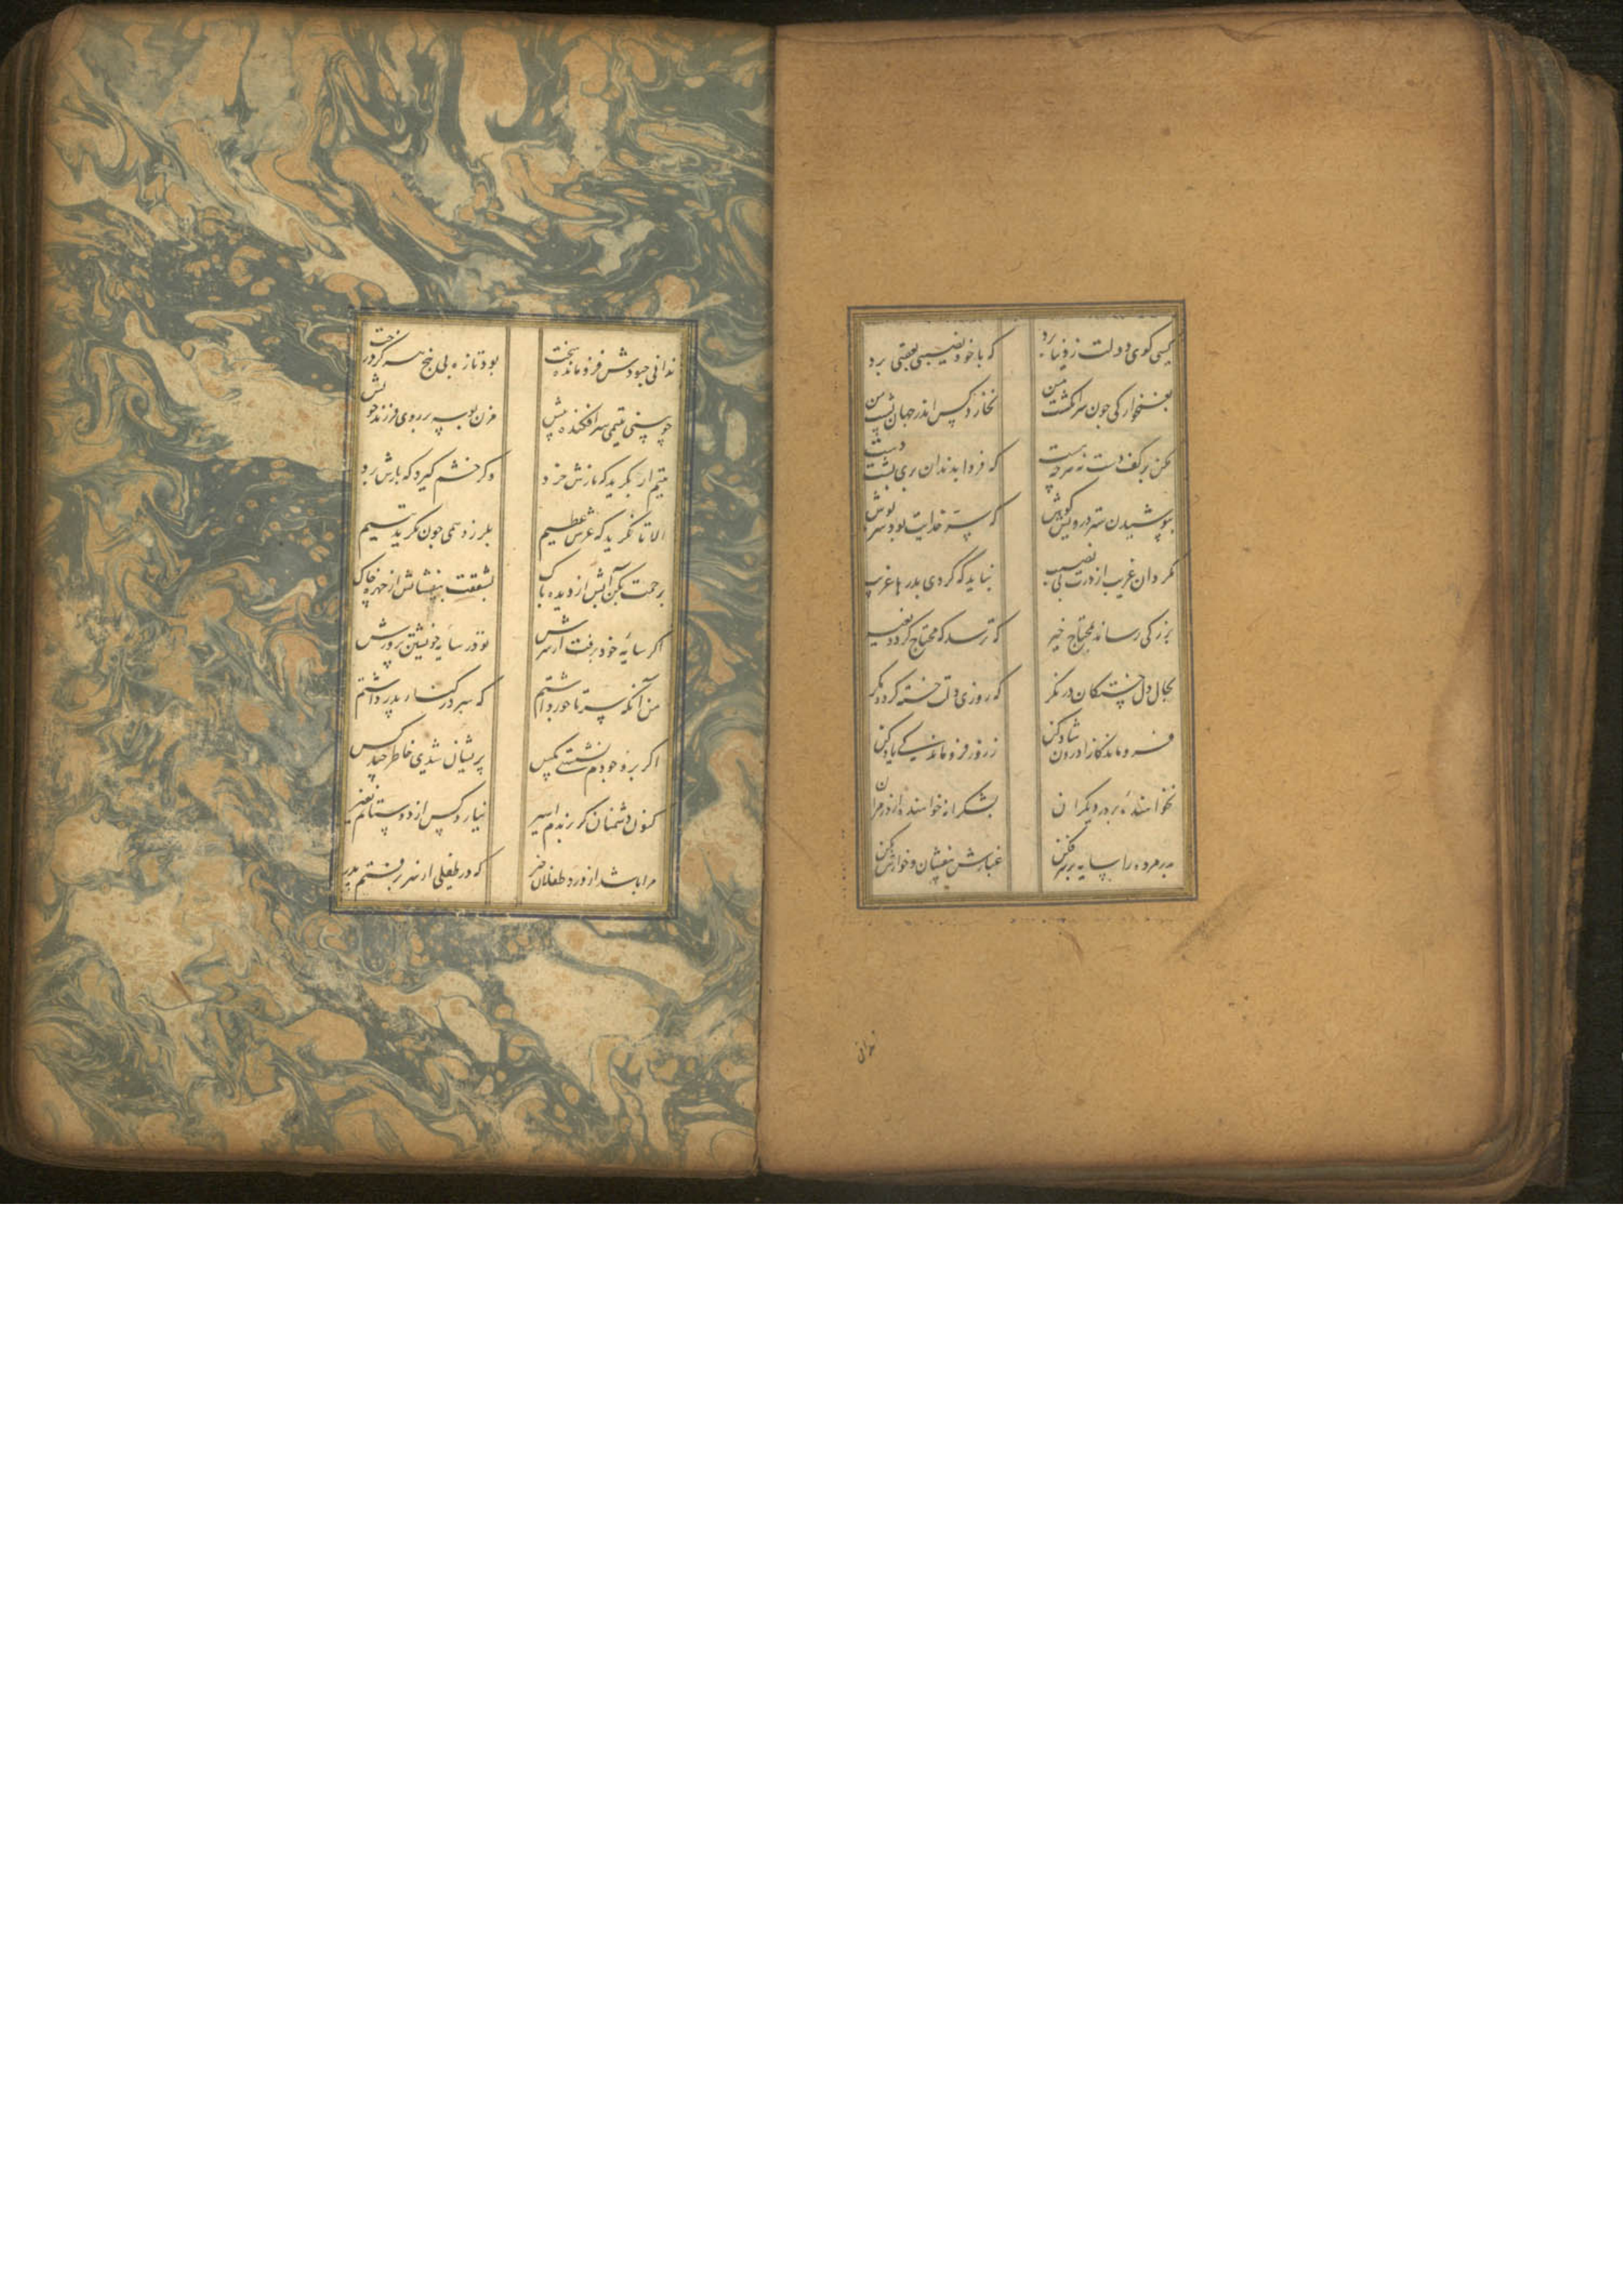 کسی کوی دولت ز دنیا برد که با خود نصیبی بعقبی برد
بغمخوارکی جون سرانکشت من نخارد کس اندر جهان پشت من
مکن بر کف دست نه هرچه هست که فردا بدندان بری پشت دست
بپوشیدن ستر درویش کوش که ستر خدایت بود سترپوش
مکردان غریب از درت بی نصیب نباید که کردی بدرها غریب
بزرکی رساند بمحتاج خیر که ترسد که محتاج کردد بغیر
بحال دل خستکان در نکر که روزی دلت خسته کردد مکر
فروماندکانرا درون شاد کن ز روز فروماندکی یاد کن
نخواهنده بر در دیکران بشکرانه خواهنده از در مران
پدر مرده را سایه بر سر فکن غبارش بیفشان و خارش بکن
ندانی
ندانی جبودش فرومانده سخت بود تازه بی بیخ هرکز درخت
چو بینی یتیمی سرافکنده پیش مزن بوسه بر روی فرزند خویش
یتیم ار بکرید که نازش خرد وکر خشم کیرد که بارش برد
الا تا نکرید که عرش عظیم بلرزد همی جون بکرید یتیم
برحمت بکن آبش از دیده پاک بشفقت بیفشانش از چهره خاک
اکر سایه خود برفت از سرش تو در سایه خویشتن پرورش
من آنکه سر تاجور داشتم که سر در کنار پدر داشتم
اکر بر وجودم نشستی مکس پریشان شدی خاطر چند کس
کنون دشمنان کر برندم اسیر نیارد کس از دوستانم نفیر
مرا باشد از درد طفلان خبر که در طفلی از سر برفتم پدر